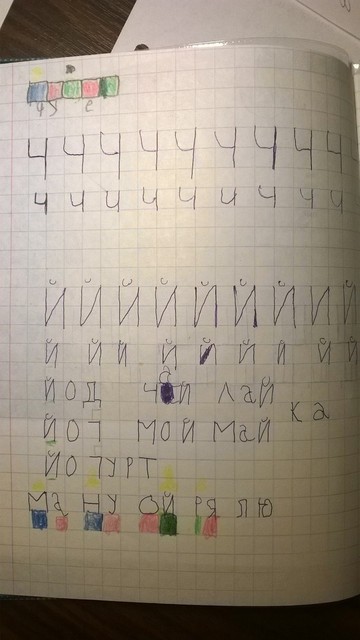 ч у м е
Ч Ч Ч Ч Ч Ч Ч Ч Ч
ч ч ч ч ч ч ч ч ч
Й Й Й Й Й Й Й Й Й
й й й й й й й й й
йод чай лай
ка
йог мой май
йогурт
ма ну ой ря лю